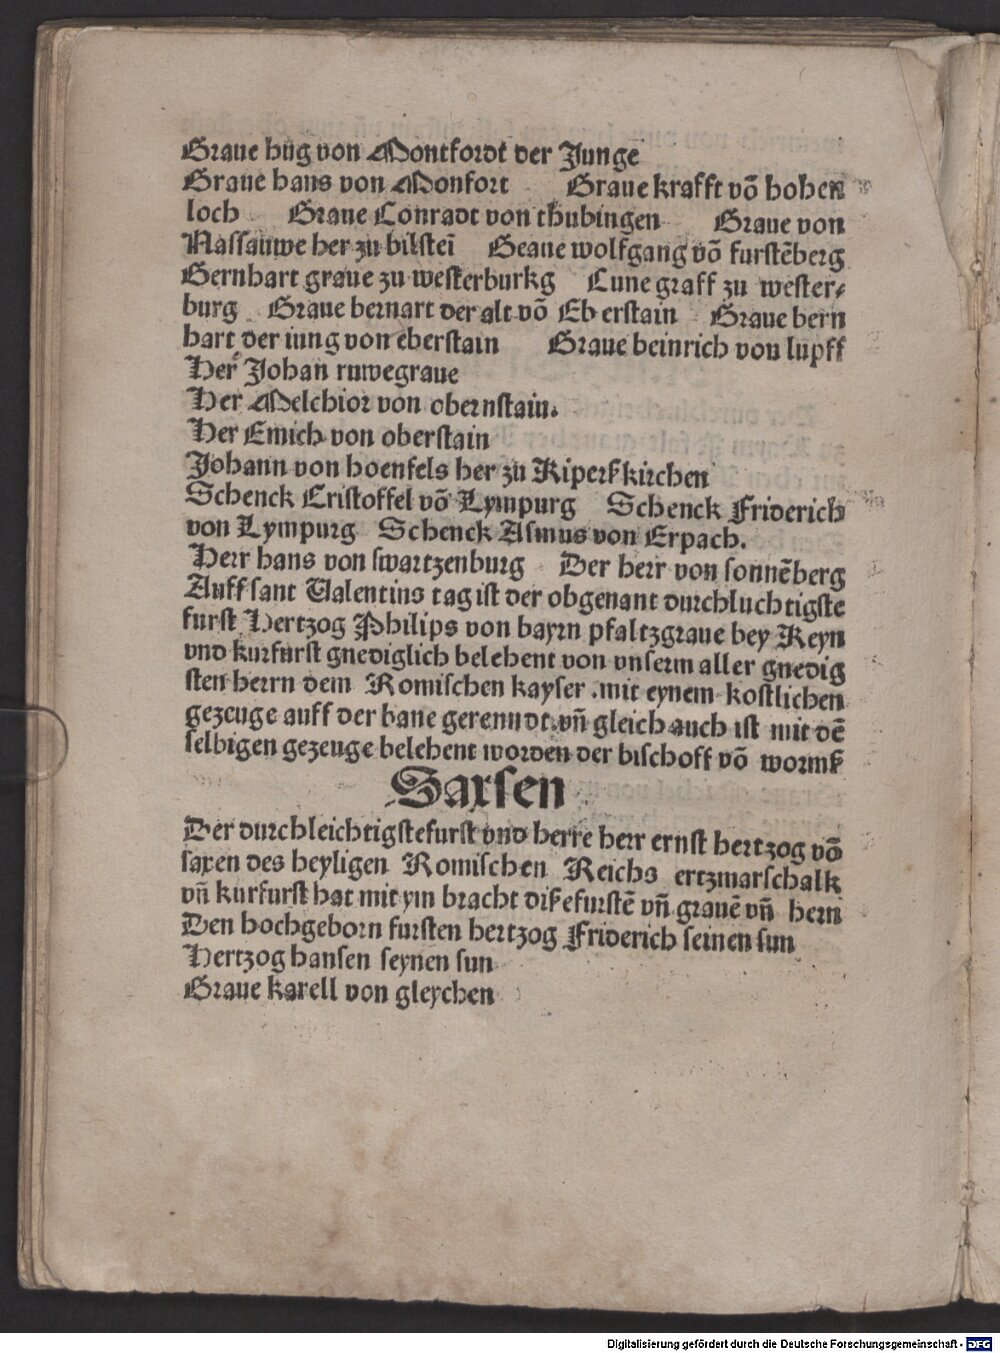 Graue hug von Montfordt der Junge
Graue hans von Monfort Graue krafft võ hohen
loch Graue Conradt von thubingen Graue von
Nassauwe her zu bilsteī Geaue wolfgang võ furstēberg
Gernhart graue zu westerburkg Cune graff zu wester⸗
burg Graue bernart der alt võ Eb erstain Graue bern
hart der iung von eberstain Graue heinrich vou lupff
Her Johan ruwegraue
Her Melchior von obernstain.
Her Emich von oberstain
Johann von hoenfels her zu Riperßkirchen
Schenck Cristoffel võ Lympurg Schenck Friderich
von Lympurg Schenck Asmus von Erpach.
Herr hans von swartzenburg Der herr von sonnēberg
Auff sant Valentins tag ist der obgenant durchluchtigste
furst Hertzog Philips von bayrn pfaltzgraue bey Reyn
vnd kurfurst gnediglich belehent von vnserm aller gnedig
sten herrn dem Romischen kayser .mit eynem kostlichen
gezeuge auff der bane gerenndt.vñ gleich auch ist mit dē
selbigen gezeuge belehent worden der bischoff võ wormß
Saxsen
Der durchleichtigstefurst vnd herre herr ernst hertzog võ
saxen des heyligen Romischen Reichs ertzmarschalk
vñ kurfurst hat mit ym bracht dißefurstē vñ grauē vñ hern
Den hochgeborn fursten hertzog Friderich seinen sun
Hertzog hansen seynen sun
Graue karell von gleychen
Digitalisierung gefördert durch die Deutsche Forschungsgemeinschaft - DFG